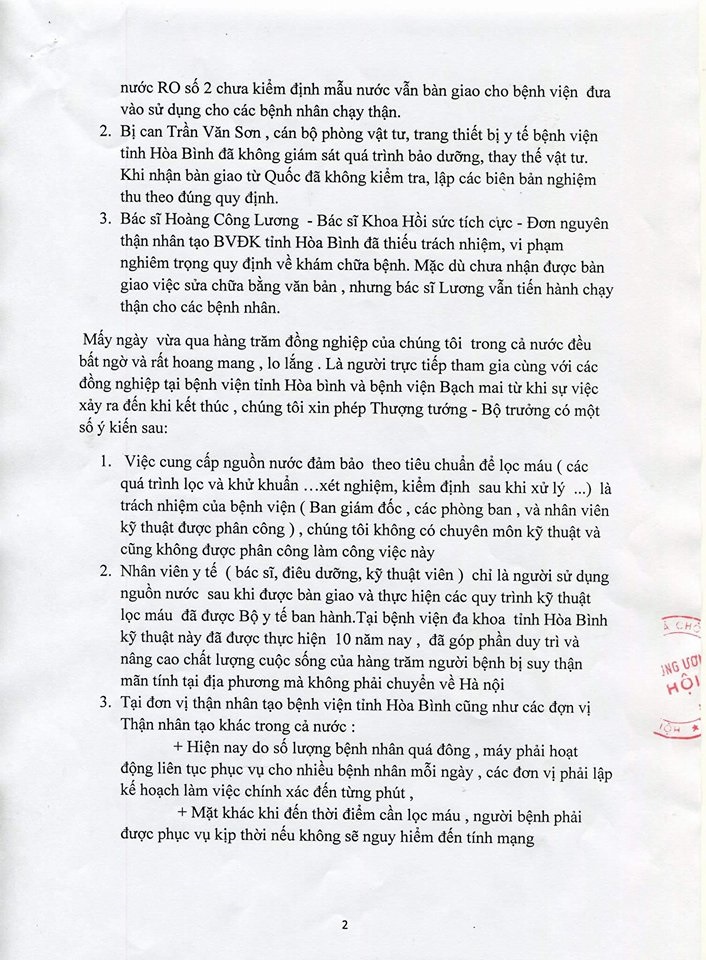 nước RO số 2 chưa kiểm định mẫu nước vẫn bàn giao cho bệnh viện đưa
vào sử dụng cho các bệnh nhân chạy thận.
2. Bị can Trần Văn Sơn , cán bộ phòng vật tư, trang thiết bị y tế bệnh viện
tỉnh Hòa Bình đã không giám sát quá trình bảo dưỡng, thay thế vật tư.
Khi nhận bàn giao từ Quốc đã không kiểm tra, lập các biên bản nghiệm
thu theo đúng quy định.
3. Bác sĩ Hoàng Công Lương - Bác sĩ Khoa Hồi sức tích cực - Đơn nguyên
thận nhân tạo BVĐK tỉnh Hòa Bình đã thiếu trách nhiệm, vi phạm
nghiêm trọng quy định về khám chữa bệnh. Mặc dù chưa nhận được bàn
giao việc sửa chữa bằng văn bản , nhưng bác sĩ Lương vẫn tiến hành chạy
thận cho các bệnh nhân.
Mấy ngày vừa qua hàng trăm đồng nghiệp của chúng tôi trong cả nước đều
bất ngờ và rất hoang mang , lo lắng . Là người trực tiếp tham gia cùng với các
đồng nghiệp tại bệnh viện tỉnh Hòa bình và bệnh viện Bạch mai từ khi sự việc
xảy ra đến khi kết thúc , chúng tôi xin phép Thượng tướng - Bộ trưởng có một
số ý kiến sau:
1. Việc cung cấp nguồn nước đảm bảo theo tiêu chuẩn để lọc máu ( các
quá trình lọc và khử khuẩn ...xét nghiệm, kiểm định sau khi xử lý ...) là
trách nhiệm của bệnh viện ( Ban giám đốc , các phòng ban , và nhân viên
kỹ thuật được phân công ) , chúng tôi không có chuyên môn kỹ thuật và
cũng không được phân công làm công việc này
2. Nhân viên y tế ( bác sĩ, điêu dưỡng, kỹ thuật viên ) chỉ là người sử dụng
nguồn nước sau khi được bàn giao và thực hiện các quy trình kỹ thuật
lọc máu đã được Bộ y tế ban hành.Tại bệnh viện đa khoa tỉnh Hòa Bình
kỹ thuật này đã được thực hiện 10 năm nay , đã góp phần duy trì và
nâng cao chất lượng cuộc sống của hàng trăm người bệnh bị suy thận
mãn tính tại địa phương mà không phải chuyển về Hà nội
3. Tại đơn vị thận nhân tạo bệnh viện tỉnh Hòa Bình cũng như các đợn vị
Thận nhân tạo khác trong cả nước :
+ Hiện nay do số lượng bệnh nhân quá đông , máy phải hoạt
động liên tục phục vụ cho nhiều bệnh nhân mỗi ngày , các đơn vị phải lập
kế hoạch làm việc chính xác đến từng phút ,
+ Mặt khác khi đến thời điểm cần lọc máu , người bệnh phải
được phục vụ kịp thời nếu không sẽ nguy hiểm đến tính mạng
HỘI
2